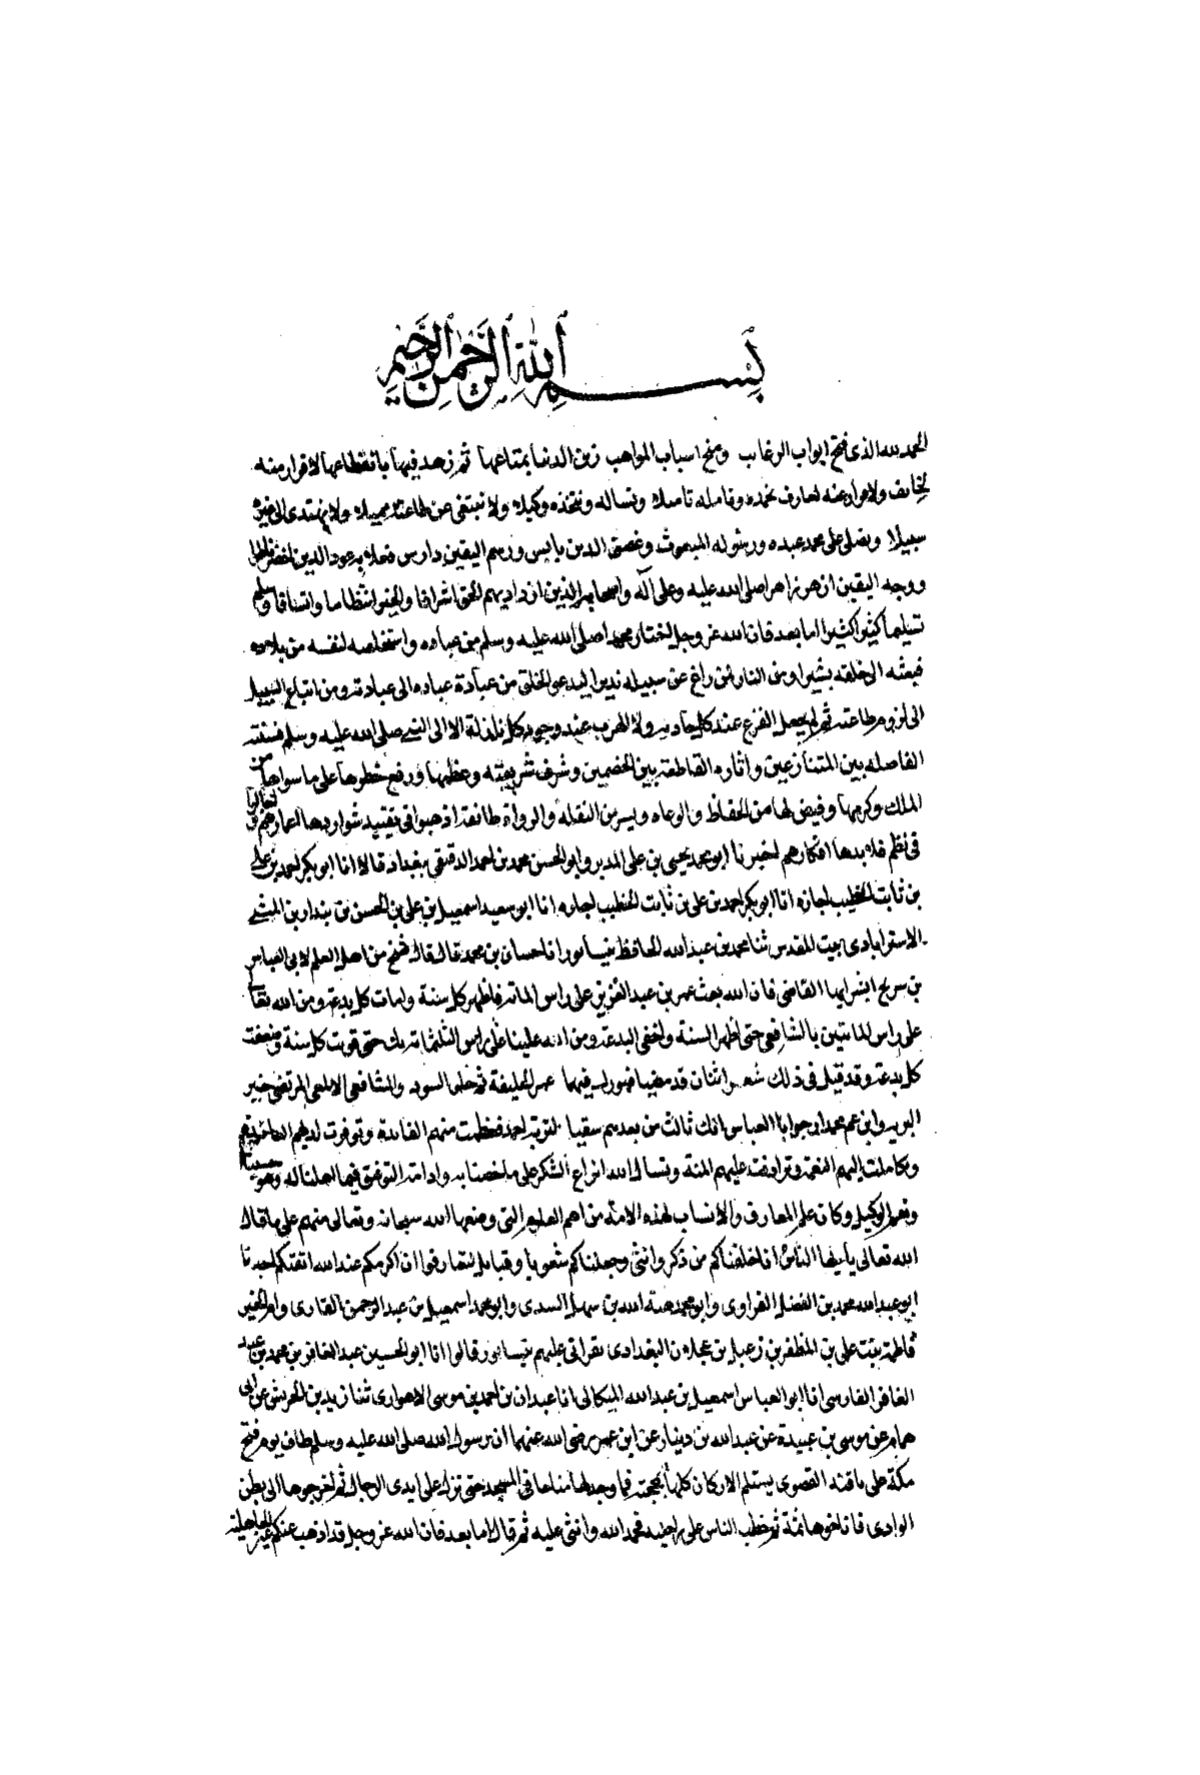 بسم الله الرحمن الرحيم
الحمد لله الذى فتح ابواب الرغايب ومنح اسباب المواهب زين الدنيا بمتاعها ثم زهد فيها بانقطاعها لا قرار منه
لخايف ولا عنه لعارف نحمده ونامله تاميلا ونساله ونتخذه وكيلا ولا نبتغى عن طاعته مميلا ولا نهتدى الى غيره
سبيلا ونصلى على محمد عبده ورسوله المبعوث وغصن الدين يابس ورسم اليقين دارس فعاد به عود الدين اخضر ناضرا
ووجه اليقين ازهر زاهرا صلى الله عليه وعلى آله واصحابه الذين ازداد بهم الحق اشراقا والخير انتظاما واتساقا وسلم
تسليما كثيرا كثيرا اما بعد فان الله عز وجل اختار محمدا صلى الله عليه وسلم من عباده واستخلصه لنفسه من بلاده
فبعثه الى خلقه بشيرا ومن النار لمن زاغ عن سبيله نذيرا ليدعو الخلق من عبادة عباده الى عبادته ومن اتباع السبيل
الى لزوم طاعته ثم لم يجعل الفزع عند كل حادثه ولا الهرب عند وجود كل نازلة الا الى النبى صلى الله عليه وسلم فسنته
الفاصله بين المتنازعين واثاره القاطعة بين الخصمين وشرف شريعته وعظمها ورفع خطوها على ما سواها من
الملل وكرمها وقيض لها من الحفاظ والوعاه ويسر من النقله والرواة طائفة اذهبوا فى تقييد شواردها اعمارهم واتعابوا
فى نظم قلائدها افكارهم اخبرنا ابو محمد يحيى بن على المدير وابو الحسن محمد بن احمد الدقيقى ببغداد قالا انا ابو بكر احمد بن على
بن ثابت الخطيب اجازه انا ابو بكر احمد بن على بن ثابت الخطيب اجازه انا ابو سعيد اسمعيل بن على بن الحسن بن بندار بن المثنى
الاسترابادى ببيت المقدس ثنا محمد بن عبد الله الحافظ بنيسابور انا حسان بن محمد قال قال شيخ من اهل العلم لابى العباس
بن سريج ابشر ايها القاضى فان الله بعث عمر بن عبد العزيز على راس الماية فاظهر كل سنة وامات كل بدعة ومن الله تعالى
على راس المايتين بالشافعى حتى اظهر السنة واخفى البدعة ومن الله علينا على راس الثلثماية بك حتى قويت كل سنة وضعفت
كل بدعة وقد قيل فى ذلك شعر اثنان قد مضيا فبورك فيهما عمر الخليفة ثم خلف السودد والشافعى الالمعى المرتضى خير
البريه وابن عم محمد ارجو ابا العباس انك ثالث من بعدهم سقيا لتربة احمد فعظمت منهم الفائدة وتوفرت لديهم
وتكاملت اليهم النعمة وترادفت عليهم المنة ونسال الله ايزاع الشكر على ما خصنا به وادامة التوفيق فيما اهلنا له وهو حسبنا
ونعم الوكيل وكان علم المعارف والانساب لهذه الامة من اهم العلوم التى وضعها الله سبحانه وتعالى منهم على ما قال
الله تعالى يا يها الناس انا خلقناكم من ذكر وانثى وجعلناكم شعوبا وقبايل لتعارفوا ان اكرمكم عند الله اتقيكم اخبرنا
ابو عبد الله محمد بن الفضل الفراوى وابو محمد هبة الله بن سهل السدى وابو محمد اسمعيل بن عبد الرحمن القارى وام الخير
فاطمة بنت على بن المظفر بن زعبل بن عجلان البغدادى بقراتى عليهم بنيسابور قالوا انا ابو الحسين عبد الغافر بن محمد بن عبد
الغافر الفارسى انا ابو العباس اسمعيل بن عبد الله الميكالى انا عبدان بن احمد بن موسى الاهوازى ثنا زيد بن الحريش عن ابى
همام عن موسى بن عبيدة عن عبد الله بن دينار عن ابن عمر رضى الله عنهما ان رسول الله صلى الله عليه وسلم طاف يوم فتح
مكة على ناقته القصوى يستلم الاركان كلها بمحجته فما وجد لها مناخا فى المسجد حتى نزل على ايدى الرجال ثم اخرجوها الى بطن
الوادى فاناخوها ثمة ثم خطب الناس على راحلته فحمد الله واثنى عليه ثم قال اما بعد فان الله عز وجل قد اذهب عنكم عبية الجاهلية